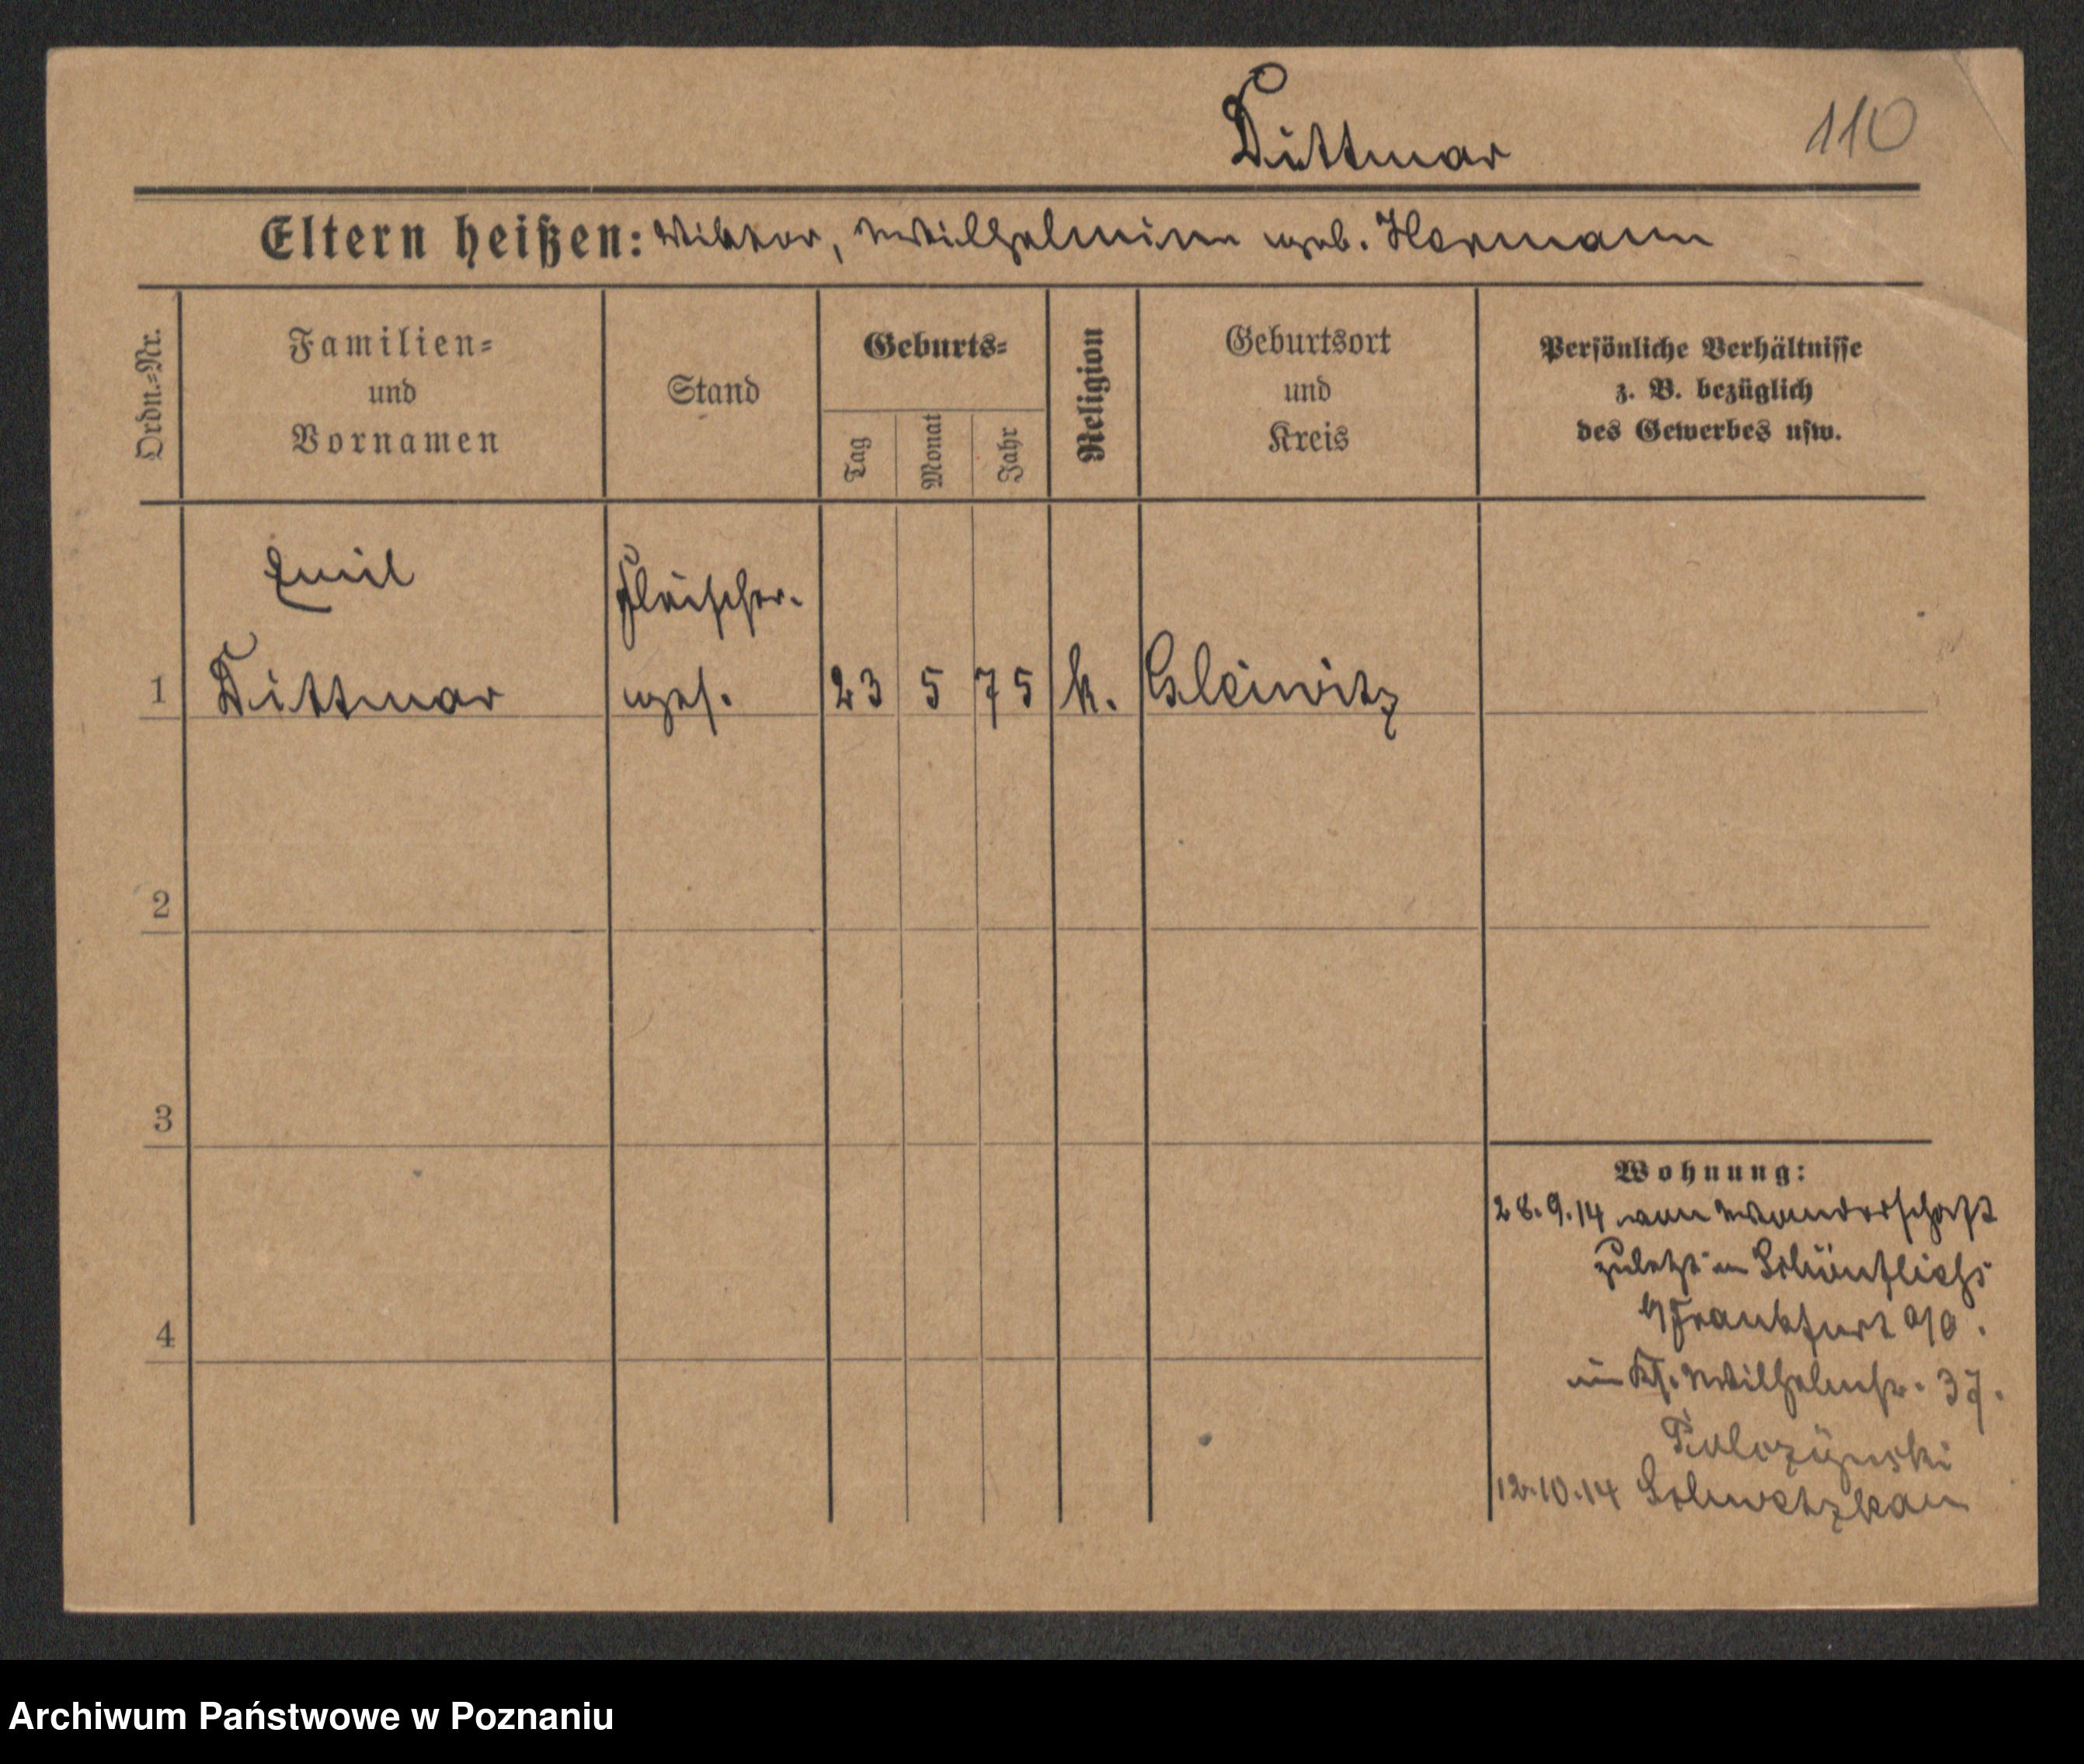 Dittmar
110
Eltern heißen: Viktor, Wilhelmine geb. Hermann
Ordn.-Nr.
Familien-
und
Vornamen
Stand
Geburts-
Tag
Monat
Jahr
Religion
Geburtsort
und
Kreis
Persönliche Verhältnisse
z. B. bezüglich
des Gewerbes usw.
Emil
Fleischer-
1 Dittmar ges. 23 5 75 k. Gleiwitz
2
3
4
Wohnung:
28.9.14 von Wanderschaft
zuletzt in
b/Frankfurt a/O.
in Wilhelmstr. 37.
12.10.14 Schwetzkau
Archiwum Państwowe w Poznaniu